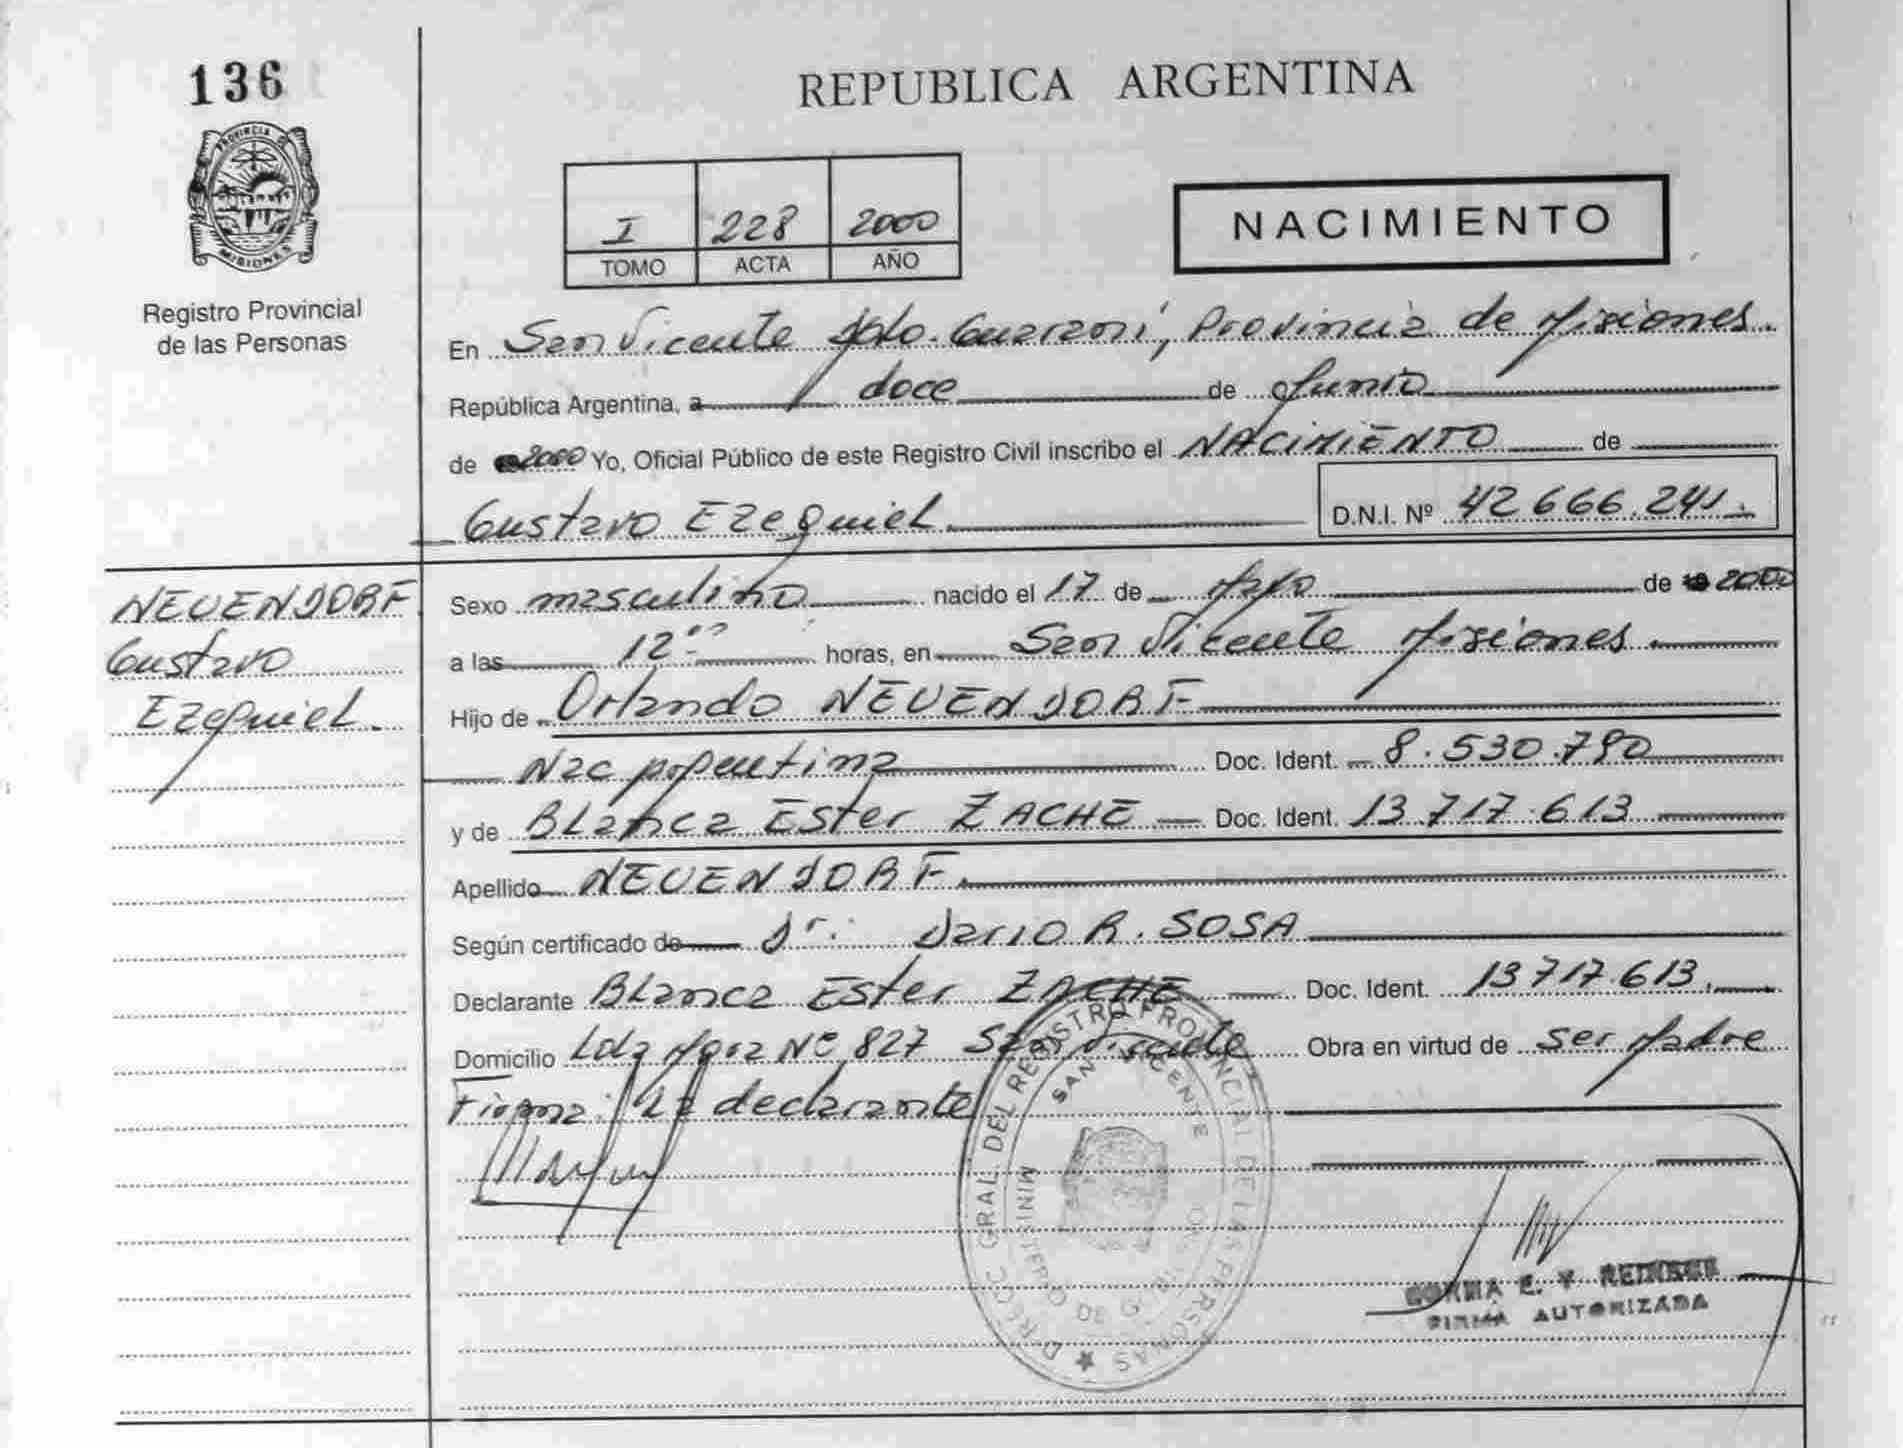 136
REPUBLICA ARGENTINA
PROVINCIA DE
MISIONES
Registro Provincial
de las Personas
I 228 2000
TOMO ACTA AÑO
NACIMIENTO
En San Vicente Dpto. Guaraní, Provincia de Misiones.
República Argentina, a doce de Junio
de 2000 Yo, Oficial Público de este Registro Civil inscribo el NACIMIENTO de
Gustavo Ezequiel
D.N.I. Nº 42.666.241.
NEUENDORF
Gustavo
Ezequiel.
Sexo masculino nacido el 17 de Mayo de 2000
a las 12 horas, en San Vicente Misiones.
Hijo de Orlando NEUENDORF
Nac Argentina Doc. Ident. 8.530.790
y de Blanca Ester ZACHE Doc. Ident. 13.717.613
Apellido NEUENDORF.
Según certificado de Dr. Dario R. SOSA
Declarante Blanca Ester ZACHE Doc. Ident. 13.717.613.
Domicilio Nº 827 San Vicente Obra en virtud de ser Madre
Firma: La declarante
DIRECC GRAL DEL REGISTRO PROVINCIAL DE LAS PERSONAS
SAN VICENTE
FIRMA AUTORIZADA